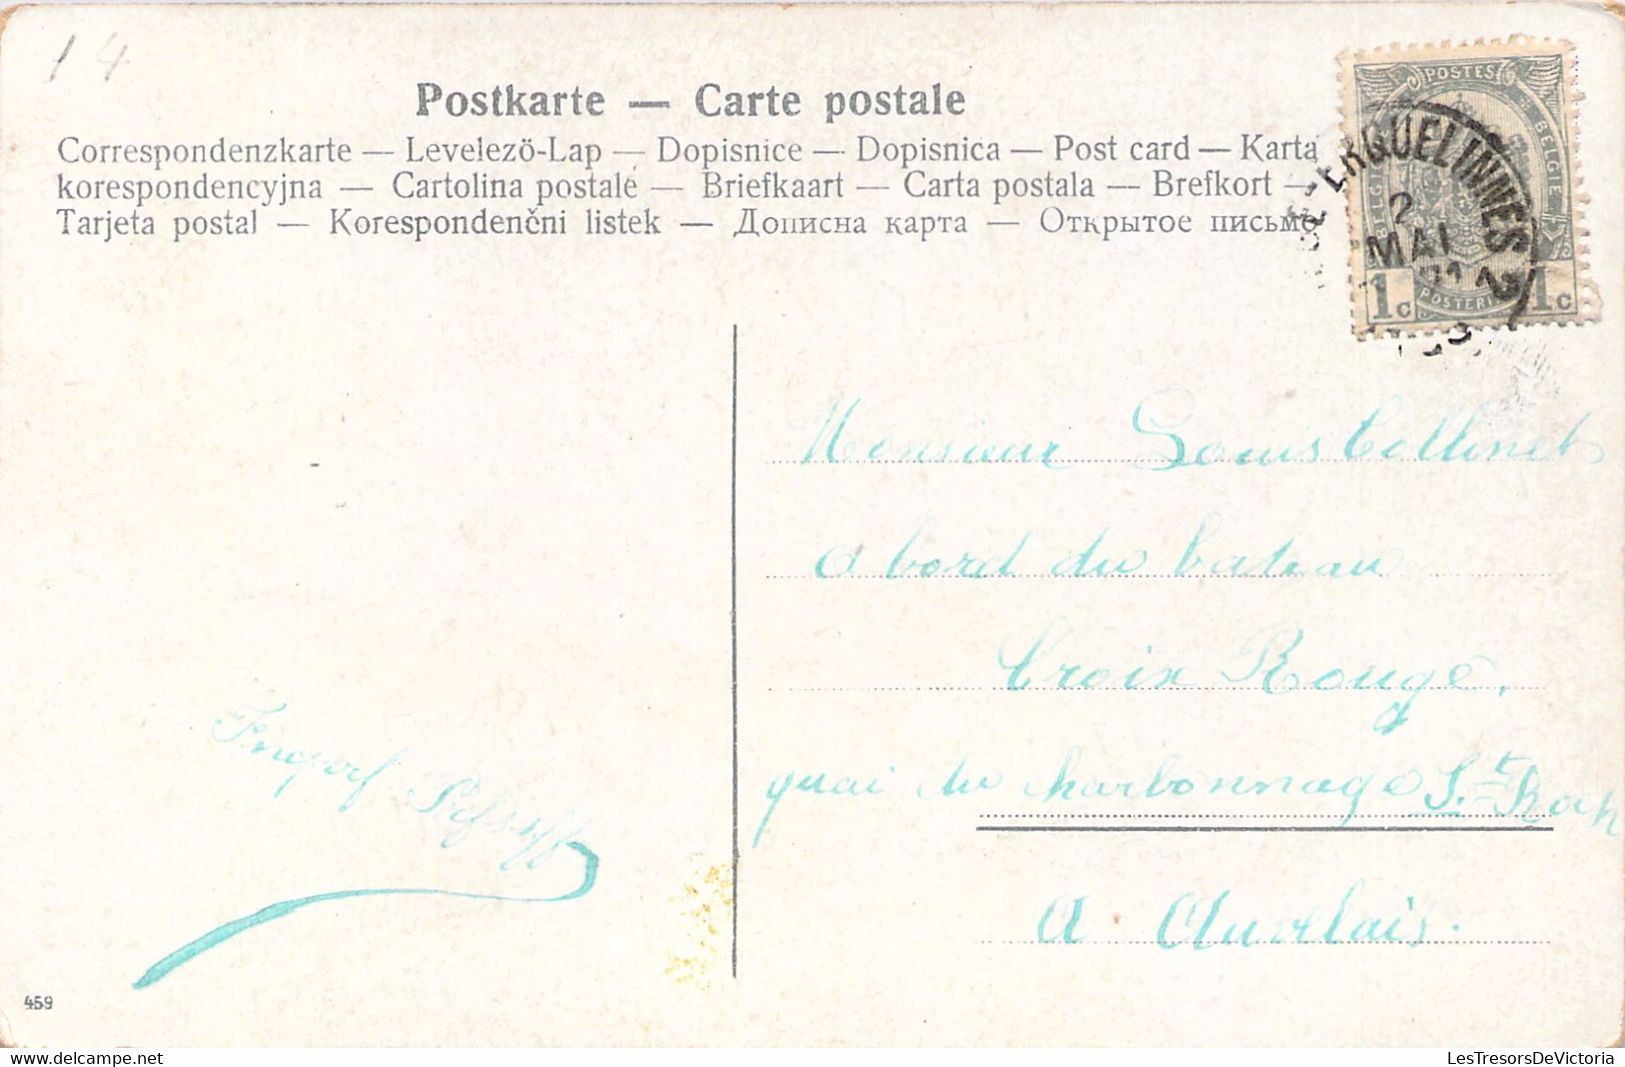 14
Postkarte — Carte postale
Correspondenzkarte — Levelezö-Lap — Dopisnice — Dopisnica — Post card — Karta
korespondencyjna — Cartolina postale — Briefkaart — Carta postala — Brefkort —
Tarjeta postal — Korespondenčni listek — Дописна карта — Открытое письмо
POSTES
BELGIQUE
BELGIE
POSTERI
1c
1c
ERQUELINNES
2
MAI
Monsieur Louis Collinet
a bord du bateau
Croix Rouge,
quai du charbonnage St Roch
A Auvelais.
459
delcampe.net
LesTresorsDeVictoria